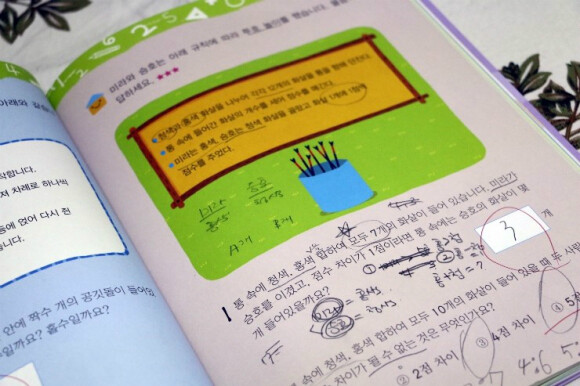 아래와 같은
작합니다.
져 차례로 하나씩
등에 얹어 다시 전
습니다.
안에 짝수 개의 공깃돌이 들어있
일까요? 홀수일까요?
미라와 승호는 아래 규칙에 따라 투호 놀이를 했습니다. 물음
답하세요. ★★★
청색과 홍색 화살을 나누어 각각 12개의 화살을 통을 향해 던진다.
통 속에 들어간 화살의 개수를 세어 점수를 매긴다.
미라는 홍색, 승호는 청색 화살을 골랐고 화살 1개에 1점씩
점수를 주었다.
미라 승호
홍색 청색
A개 B개
1 통 속에 청색, 홍색 합하여 모두 7개의 화살이 들어 있습니다. 미라가
승호를 이겼고, 점수 차이가 1점이라면 통 속에는 승호의 화살이 몇
개 들어있을까요?
3 개
통 속에 청색, 홍색 합하여 모두 10개의 화살이 들어 있을 때 두 사람
차이가 될 수 없는 것은 무엇인가요?
② 2점 차이 ③ 4점 차이 ④ 5점
4:6 5: